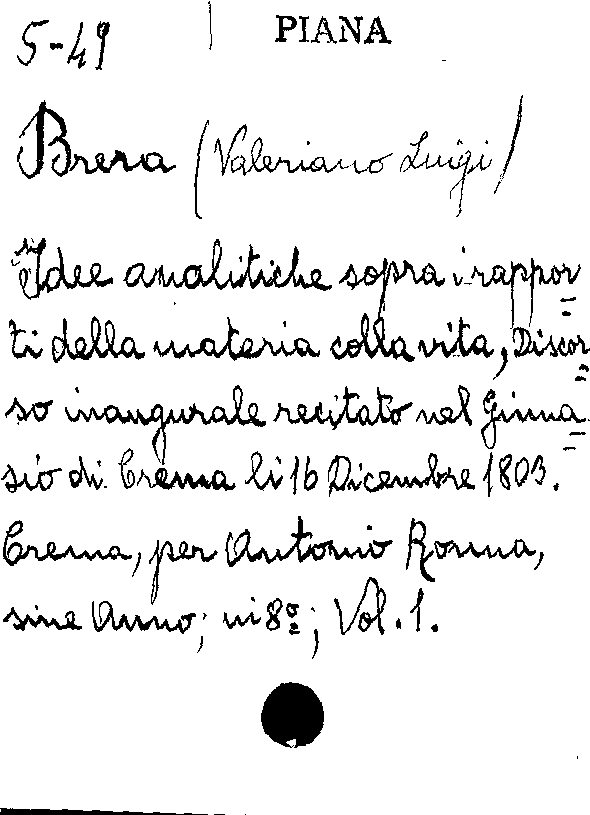 5-49 PIANA
Brera (Valeriano Luigi)
Idee analitiche sopra i rappor=
ti della materia colla vita, Discor=
so inaugurale recitato nel Ginna=
sio di Crema li 16 Dicembre 1803.
Crema, per Antonio Ronna,
sine Anno; in 8º; Vol. 1.